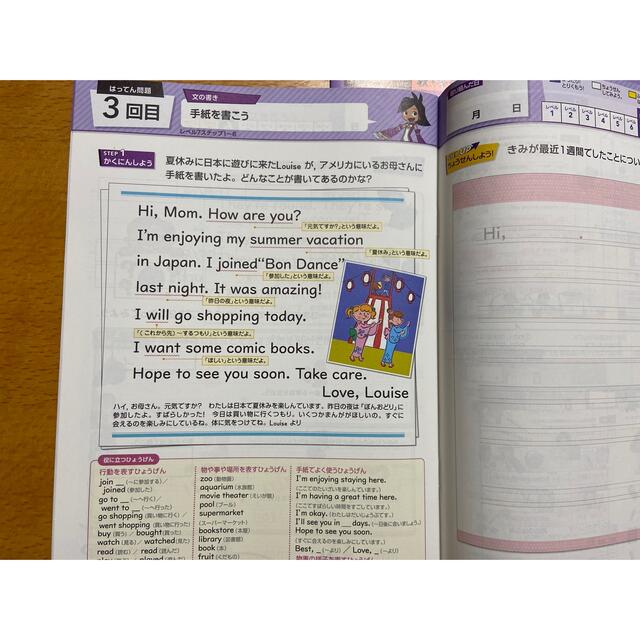 はってん問題
3回目
文の書き
手紙を書こう
レベル7ステップ1〜6
STEP 1
かくにんしよう
夏休みに日本に遊びに来たLouise が、アメリカにいるお母さんに
手紙を書いたよ。どんなことが書いてあるのかな?
Hi, Mom. How are you?
「元気ですか?」という意味だよ。
I'm enjoying my summer vacation
「夏休み」という意味だよ。
in Japan. I joined "Bon Dance"
「参加した」という意味だよ。
last night. It was amazing!
「昨日の夜」という意味だよ。
I will go shopping today.
「(これから先)〜するつもり」という意味だよ。
I want some comic books.
「ほしい」という意味だよ。
Hope to see you soon. Take care.
Love, Louise
ハイ、お母さん。元気ですか? わたしは日本で夏休みを楽しんでいます。昨日の夜は「ぼんおどり」に
参加したよ。すばらしかった! 今日は買い物に行くつもり。いくつかまんががほしいの。すぐに
会えるのを楽しみにしているね。体に気をつけてね。Louise より
役に立つひょうげん
行動を表すひょうげん
join __(〜に参加する)
joined(参加した)
go to __(〜へ行く)/
went to __(〜へ行った)
go shopping(買い物に行く)/
went shopping(買い物に行った)
buy(買う)/ bought(買った)
watch(見る)/ watched(見た)
read(読む)/ read(読んだ)
物や事や場所を表すひょうげん
zoo(動物園)
aquarium(水族館)
movie theater(えいが館)
pool(プール)
supermarket
(スーパーマーケット)
bookstore(本屋)
library(図書館)
book(本)
fruit(くだもの)
手紙でよく使うひょうげん
I'm enjoying staying here.
(ここでのたいざいを楽しんでいます。)
I'm having a great time here.
(ここですばらしい時間をすごしています。)
I'm okay.(わたしはだいじょうぶです。)
I'll see you in __ days.(〜日後に会いましょう。)
Hope to see you soon.
(すぐに会えるのを楽しみにしています。)
Best, _(〜より)/ Love, _(〜より)
月 日
レベル 1
レベル 2
レベル 3
レベル 4
レベル 5
レベル 6
ちょうせんしよう!
きみが最近1週間でしたことについ
Hi,